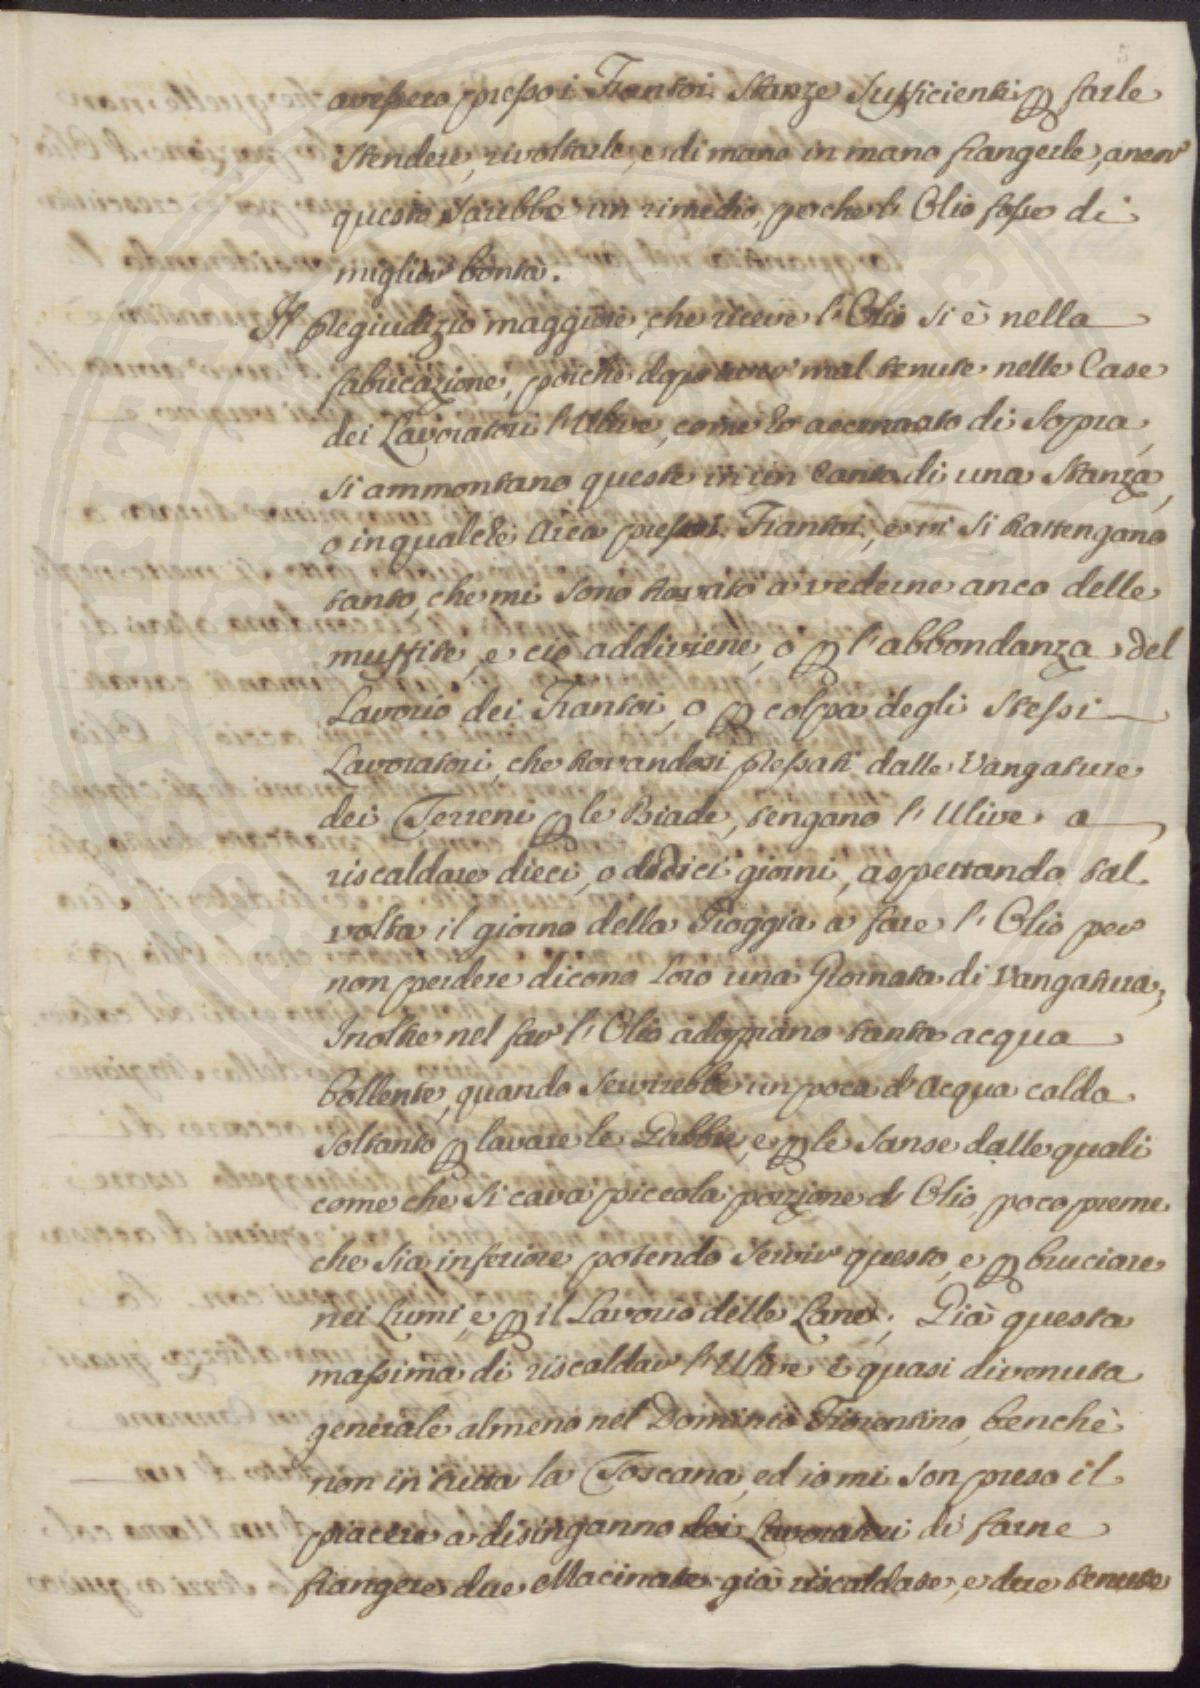 avessero presso i Frantoi Stanze Sufficienti ꝑ farle
Stendere, rivoltarle, e di mano in mano frangerle, anco
questo Sarebbe un rimedio, perche l' Olio fosse di
miglior bontà.
Il Pregiudizio maggiore, che riceve l' Olio Si è nella
fabricazione, poiche dopo aver mal tenute nelle Case
dei Lavoratori l' Ulive, come hò accennato di Sopra,
Si ammontano queste in un Canto di una Stanza,
o in qualche Arca presso i Frantoi, e vi Si trattengano
tanto, che mi Sono trovato a vederne anco delle
muffite, e ciò addiviene, o ꝑ l' abbondanza del
Lavorio dei Frantoi, o ꝑ colpa degli Stessi
Lavoratori, che trovandosi pressati dalle Vangature
dei Terreni ꝑ le Biade, tengano l' Ulive a
riscaldare dieci, o dodici giorni, aspettando tal
volta il giorno della Pioggia a fare l' Olio per
non perdere dicono loro una Giornata di Vangatura;
Inoltre nel far l' Olio adoprano tanta acqua
bollente, quando Servirebbe un poca d' Acqua calda
Soltanto ꝑ lavare le Gabbie, e ꝑ le Sanse dalle quali
come che Si cava piccola porzione d' Olio, poco preme
che Sia inferiore potendo Servir questo, e ꝑ bruciare
nei Lumi, e ꝑ il Lavorio delle Lane; Già questa
massima di riscaldar l' Ulive è quasi divenuta
generale almeno nel Dominio Fiorentino, benchè
non in tutta la Toscana, ed io mi Son preso il
piacere a disinganno dei Lavoratori di farne
frangere due Macinate già riscaldate, e due tenute